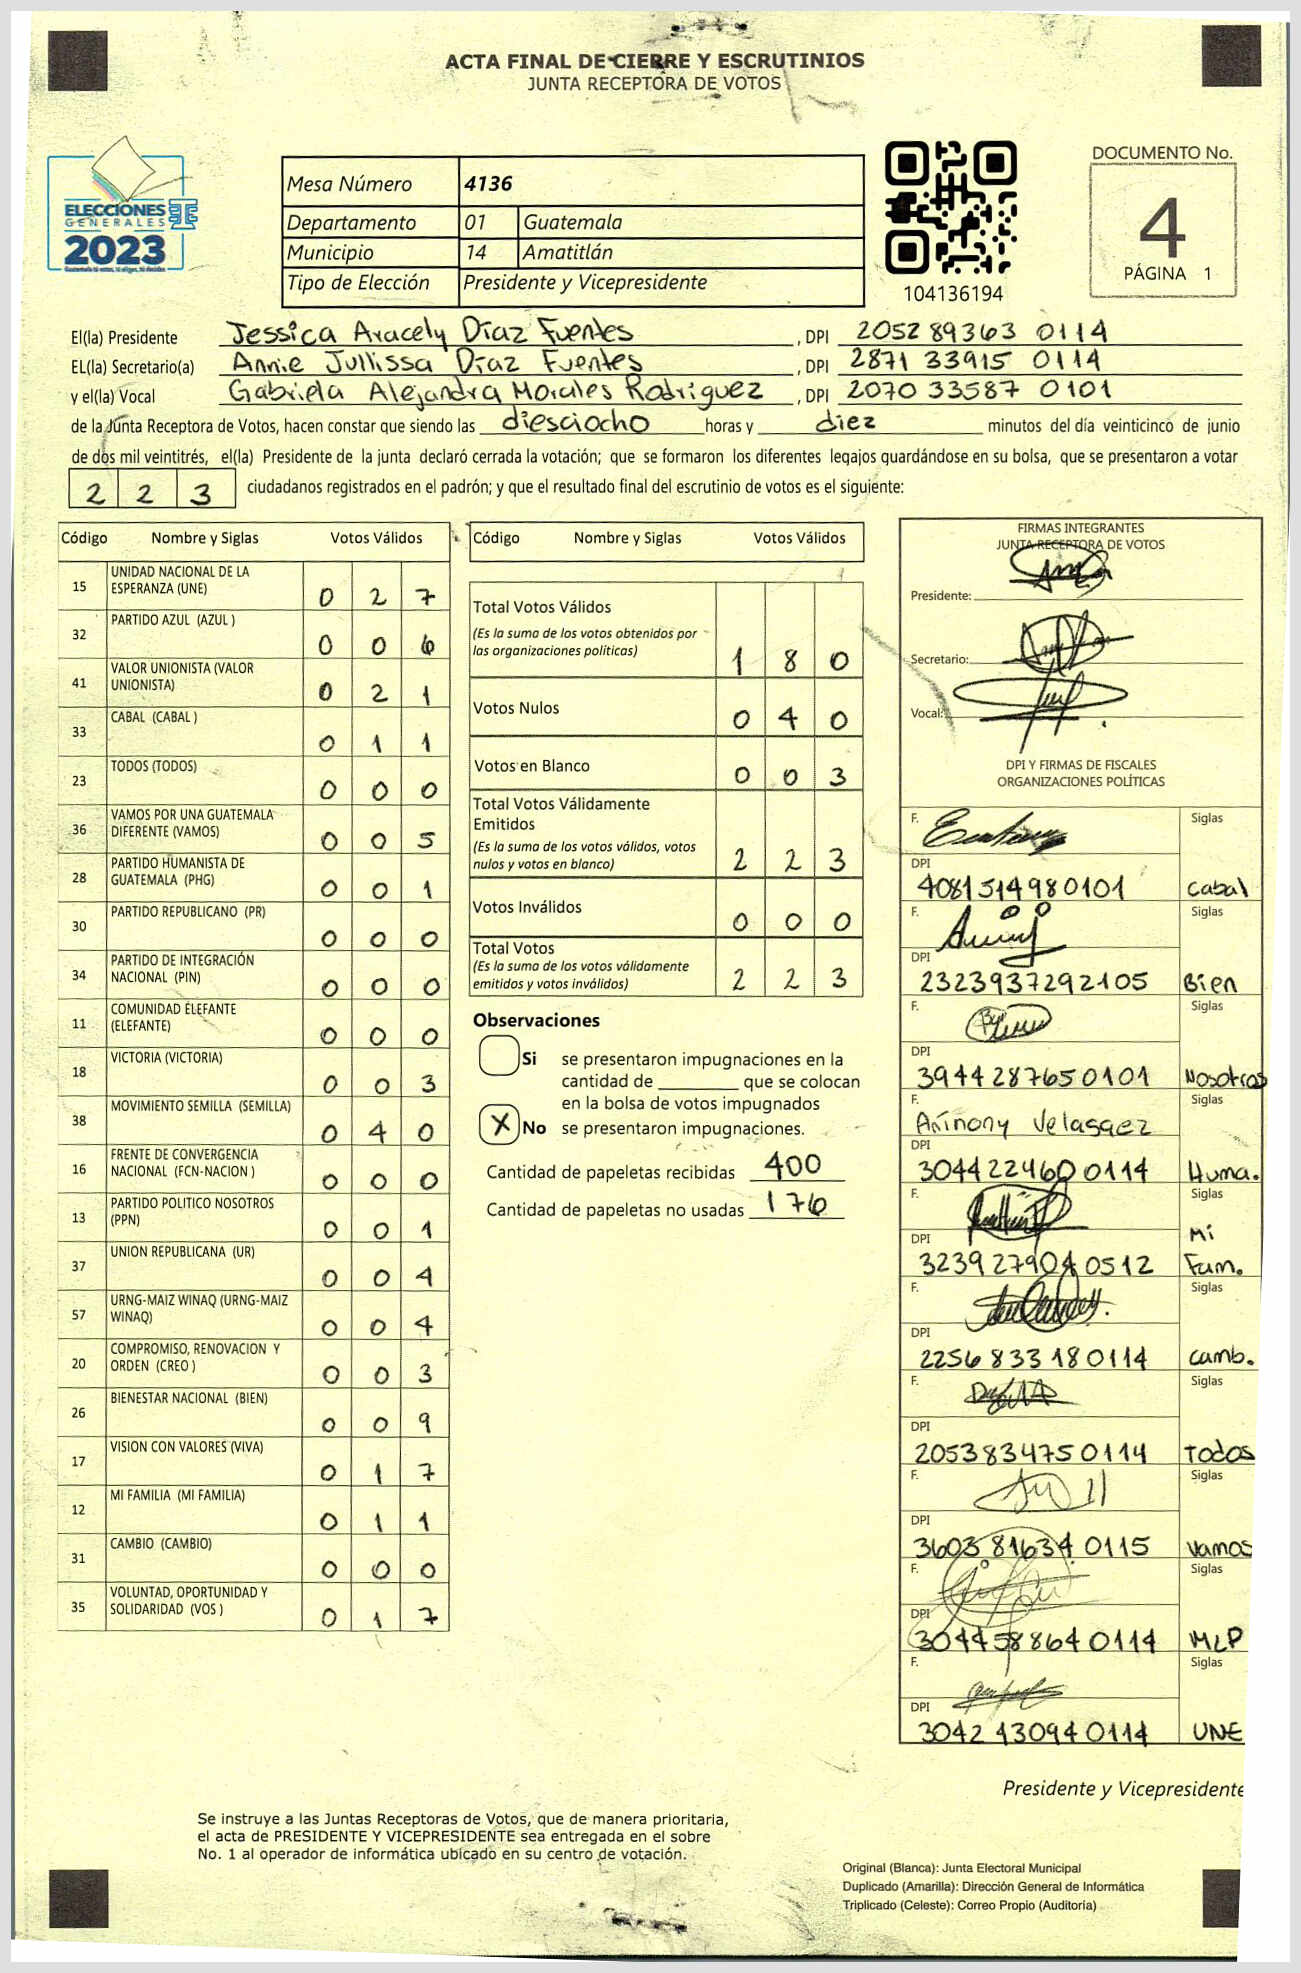 ACTA FINAL DE CIERRE Y ESCRUTINIOS
JUNTA RECEPTORA DE VOTOS
ELECCIONES
GENERALES
2023
Mesa Número 4136
Departamento 01 Guatemala
Municipio 14 Amatitlán
Tipo de Elección Presidente y Vicepresidente
104136194
DOCUMENTO No.
4
PÁGINA 1
El(la) Presidente Jessica Aracely Díaz Fuentes, DPI 2052 89363 0114
EL(la) Secretario(a) Annie Jullissa Díaz Fuentes, DPI 2871 33915 0114
y el(la) Vocal Gabriela Alejandra Morales Rodriguez, DPI 2070 33587 0101
de la Junta Receptora de Votos, hacen constar que siendo las diesciocho horas y diez minutos del día veinticinco de junio
de dos mil veintitrés, el(la) Presidente de la junta declaró cerrada la votación; que se formaron los diferentes legajos guardándose en su bolsa, que se presentaron a votar
223 ciudadanos registrados en el padrón; y que el resultado final del escrutinio de votos es el siguiente:
Código Nombre y Siglas Votos Válidos
15 UNIDAD NACIONAL DE LA ESPERANZA (UNE) 0 2 7
32 PARTIDO AZUL (AZUL ) 0 0 6
41 VALOR UNIONISTA (VALOR UNIONISTA) 0 2 1
33 CABAL (CABAL ) 0 1 1
23 TODOS (TODOS) 0 0 0
36 VAMOS POR UNA GUATEMALA DIFERENTE (VAMOS) 0 0 5
28 PARTIDO HUMANISTA DE GUATEMALA (PHG) 0 0 1
30 PARTIDO REPUBLICANO (PR) 0 0 0
34 PARTIDO DE INTEGRACIÓN NACIONAL (PIN) 0 0 0
11 COMUNIDAD ELEFANTE (ELEFANTE) 0 0 0
18 VICTORIA (VICTORIA) 0 0 3
38 MOVIMIENTO SEMILLA (SEMILLA) 0 4 0
16 FRENTE DE CONVERGENCIA NACIONAL (FCN-NACION ) 0 0 0
13 PARTIDO POLITICO NOSOTROS (PPN) 0 0 1
37 UNION REPUBLICANA (UR) 0 0 4
57 URNG-MAIZ WINAQ (URNG-MAIZ WINAQ) 0 0 4
20 COMPROMISO, RENOVACION Y ORDEN (CREO ) 0 0 3
26 BIENESTAR NACIONAL (BIEN) 0 0 9
17 VISION CON VALORES (VIVA) 0 1 7
12 MI FAMILIA (MI FAMILIA) 0 1 1
31 CAMBIO (CAMBIO) 0 0 0
35 VOLUNTAD, OPORTUNIDAD Y SOLIDARIDAD (VOS ) 0 1 7
Código Nombre y Siglas Votos Válidos
Total Votos Válidos
(Es la suma de los votos obtenidos por
las organizaciones políticas) 1 8 0
Votos Nulos 0 4 0
Votos en Blanco 0 0 3
Total Votos Válidamente
Emitidos
(Es la suma de los votos válidos, votos
nulos y votos en blanco) 2 2 3
Votos Inválidos 0 0 0
Total Votos
(Es la suma de los votos válidamente
emitidos y votos inválidos) 2 2 3
Observaciones
Si se presentaron impugnaciones en la
cantidad de ________ que se colocan
en la bolsa de votos impugnados
X No se presentaron impugnaciones.
Cantidad de papeletas recibidas 400
Cantidad de papeletas no usadas 176
FIRMAS INTEGRANTES
JUNTA RECEPTORA DE VOTOS
Presidente:
Secretario:
Vocal:
DPI Y FIRMAS DE FISCALES
ORGANIZACIONES POLÍTICAS
F. Siglas
DPI
4081514980101 Cabal
F. Siglas
DPI
2323937292105 Bien
F. Siglas
DPI
3944287650101 Nosotros
F. Siglas
Velasquez
DPI
3044224600114 Huma.
F. Siglas
DPI Mi
3239279040512 Fam.
F. Siglas
DPI
2256 833180114 camb.
F. Siglas
DPI
2053834750114 Todos
F. Siglas
DPI
3603816340115 Vamos
F. Siglas
DPI
3044588640114 MLP
F. Siglas
DPI
3042430940114 UNE
Presidente y Vicepresidente
Se instruye a las Juntas Receptoras de Votos, que de manera prioritaria,
el acta de PRESIDENTE Y VICEPRESIDENTE sea entregada en el sobre
No. 1 al operador de informática ubicado en su centro de votación.
Original (Blanca): Junta Electoral Municipal
Duplicado (Amarilla): Dirección General de Informática
Triplicado (Celeste): Correo Propio (Auditoría)